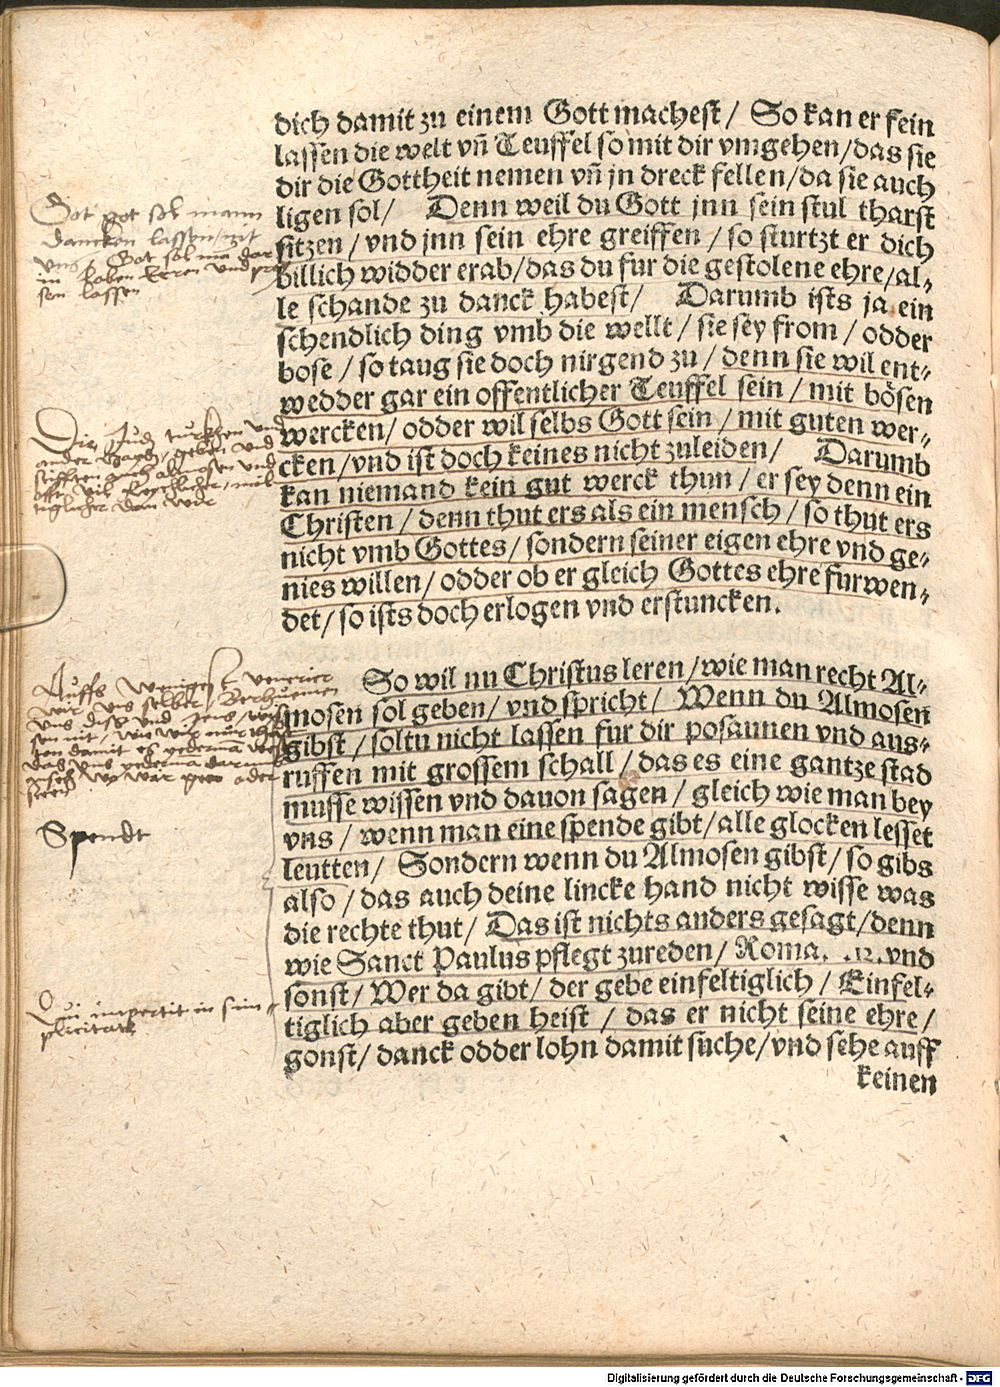 dich damit zu einem Gott machest / So kan er fein
lassen die welt vñ Teuffel so mit dir vmgehen / das sie
dir die Gottheit nemen vñ jn dreck fellen / da sie auch
ligen sol / Denn weil du Gott jnn sein stul tharst
sitzen / vnd jnn sein ehre greiffen / so sturtzt er dich
billich widder erab / das du fur die gestolene ehre / al⸗
le schande zu danck habest / Darumb ists ja ein
schendlich ding vmb die wellt / sie sey from / odder
bose / so taug sie doch nirgend zu / denn sie wil ent⸗
wedder gar ein offentlicher Teuffel sein / mit bösen
wercken / odder wil selbs Gott sein / mit guten wer⸗
cken / vnd ist doch keines nicht zuleiden / Darumb
kan niemand kein gut werck thun / er sey denn ein
Christen / denn thut ers als ein mensch / so thut ers
nicht vmb Gottes / sondern seiner eigen ehre vnd ge⸗
nies willen / odder ob er gleich Gottes ehre furwen⸗
det / so ists doch erlogen vnd erstuncken.
So wil nu Christus leren / wie man recht Al⸗
mosen sol geben / vnd spricht / Wenn du Almosen
gibst / soltu nicht lassen fur dir posaunen vnd aus⸗
ruffen mit grossem schall / das es eine gantze stad
musse wissen vnd dauon sagen / gleich wie man bey
vns / wenn man eine spende gibt / alle glocken lesset
leutten / Sondern wenn du Almosen gibst / so gibs
also / das auch deine lincke hand nicht wisse was
die rechte thut / Das ist nichts anders gesagt / denn
wie Sanct Paulus pflegt zureden / Roma. .12. vnd
sonst / Wer da gibt / der gebe einfeltiglich / Einfel⸗
tiglich aber geben heist / das er nicht seine ehre /
gonst / danck odder lohn damit suche / vnd sehe auff
keinen
Got sol mann
dancken lassen
vns / Got sol
lassen
Die Jud turcken vnd
ander geben vnd
stifften almosen vnd
vil
Auffs
wir vns selber
vns diss vnd
damit
das vns
oder
Spendt
Qui impertit in sim⸗
plicitate
Digitalisierung gefördert durch die Deutsche Forschungsgemeinschaft - DFG